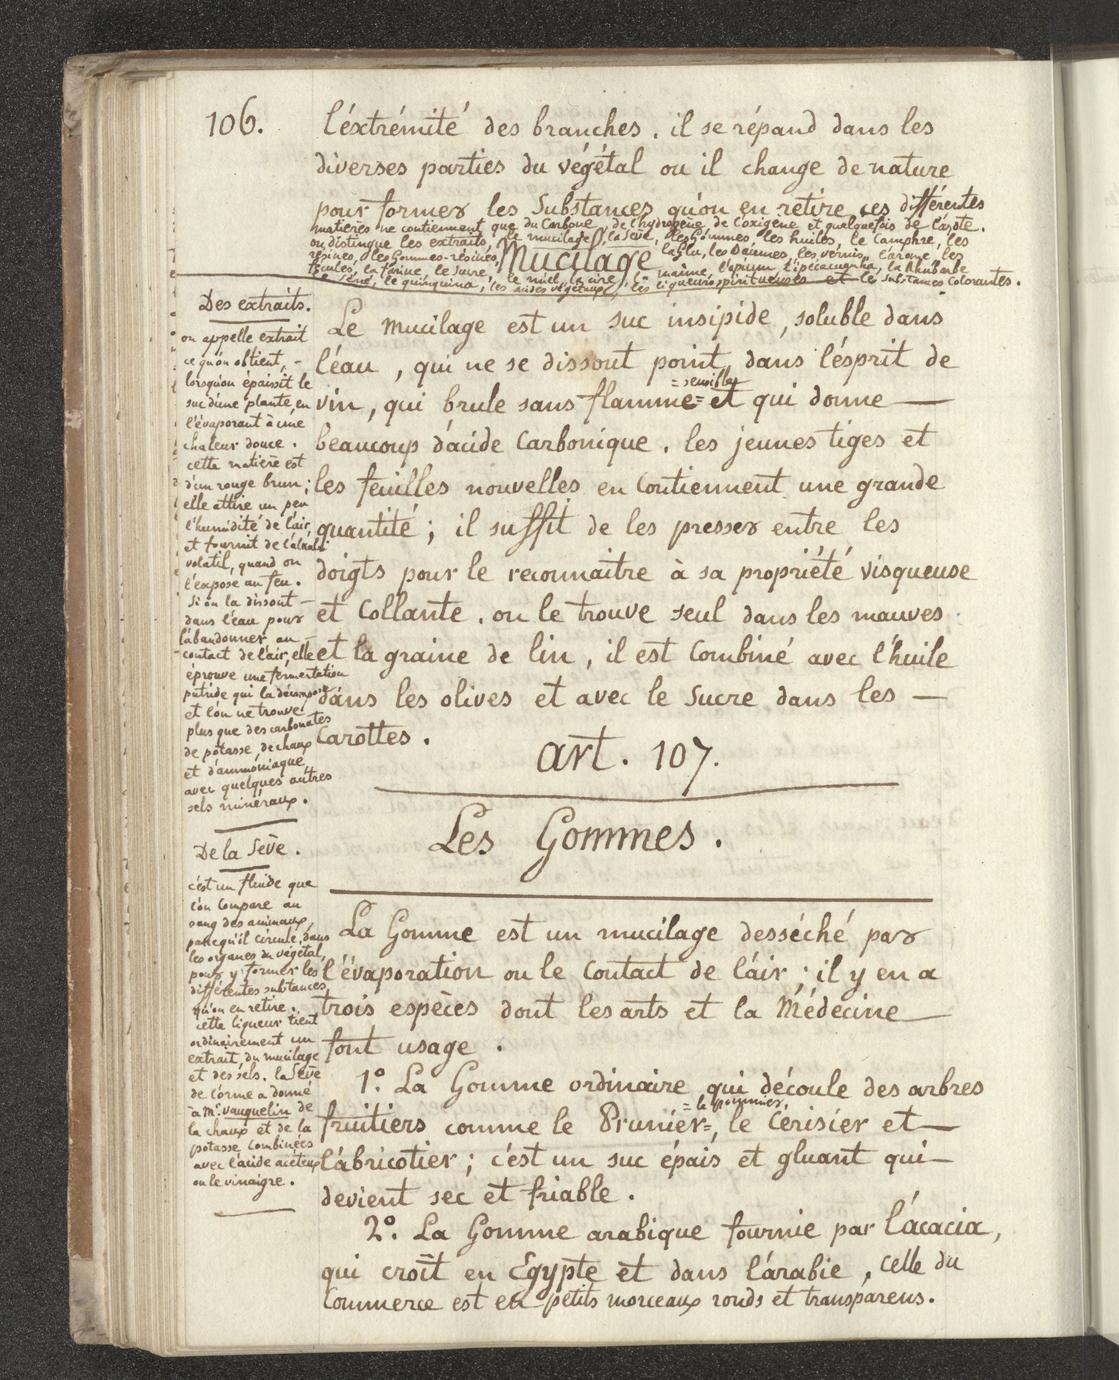 106.
l'éxtrémité des branches. il se répand dans les
diverses parties du végétal ou il change de nature
pour former les Substances qu'on en retire ces différentes
matières ne contiennent que du Carbone, de l'hydrogène, de l'oxigène et quelquefois de l'azote.
on distingue les extraits, le mucilage, la Sève, les Gommes, les huiles, le Camphre, les
résines, les Gommes-résines, la glu, les Baumes, les vernis, l'arome, les
fécules, la farine, le Sucre, le miel, la cire, la manne, l'opium, l'ipécacuanha, la Rhubarbe
le séné, le quinquina, les acides végétaux, les liqueurs spiritueuses et les substances Colorantes.
Mucilage
Le mucilage est un suc insipide, soluble dans
l'éau, qui ne se dissout point dans l'ésprit de
vin, qui brule sans flamme = sensible = et qui donne —
beaucoup d'acide Carbonique. les jeunes tiges et
les feuilles nouvelles en Contiennent une grande
quantité; il suffit de les presser entre les
doigts pour le reconnaitre à sa propriété visqueuse
et Collante. on le trouve seul dans les mauves
et la graine de lin, il est Combiné avec l'huile
dans les olives et avec le Sucre dans les —
Carottes.
Des extraits.
on appelle extrait
ce qu'on obtient, —
lorsqu'on épaissit le
suc d'une plante, en
l'évaporant à une
chaleur douce.
cette matière est
d'un rouge brun;
elle attire un peu
l'humidité de l'air,
et fournit de l'alkali
volatil, quand on
l'expose au feu.
Si on la dissout —
dans l'eau pour
l'abandonner au —
contact de l'air, elle
éprouve une fermentation
putride qui la décompose
et l'on ne trouve
plus que des carbonates
de potasse, de chaux
et d'ammoniaque
avec quelques autres
sels minéraux.
De la Sève.
c'est un fluide que
l'on Compare au
sang des animaux,
parcequ'il circule dans
les organes du végétal,
pour y former les
différentes substances
qu'on en retire.
cette liqueur tient
ordinairement un
extrait, du mucilage
et des sels. la Sève
de l'orme a donné
à Mr. Vauquelin de
la chaux et de la
potasse Combinées
avec l'acide acéteux
ou le vinaigre.
art. 107.
Les Gommes.
La Gomme est un mucilage desséché par
l'évaporation ou le Contact de l'air; il y en a
trois espèces dont les arts et la Médecine —
font usage.
1.° La Gomme ordinaire qui découle des arbres
fruitiers comme le Prunier = le pommier, =, le Cérisier et —
l'abricotier; c'est un suc épais et gluant qui —
devient sec et friable.
2.° La Gomme arabique fournie par l'acacia,
qui croît en Egypte et dans l'arabie, Celle du
Commerce est en petits morceaux ronds et transparens.